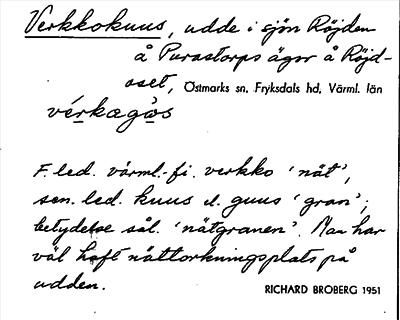 Verkkokuus, udde i sjön Röjden
å Purastorps ägor å Röjd-
åset, Östmarks sn. Fryksdals hd, Värml. län
vérkægás
F. led. värml.-fi. verkko 'nät',
sen. led. kuus el. guus 'gran';
betydelse sål. 'nätgranen'. Man har
väl haft nättorkningsplats på
udden.
RICHARD BROBERG 1951